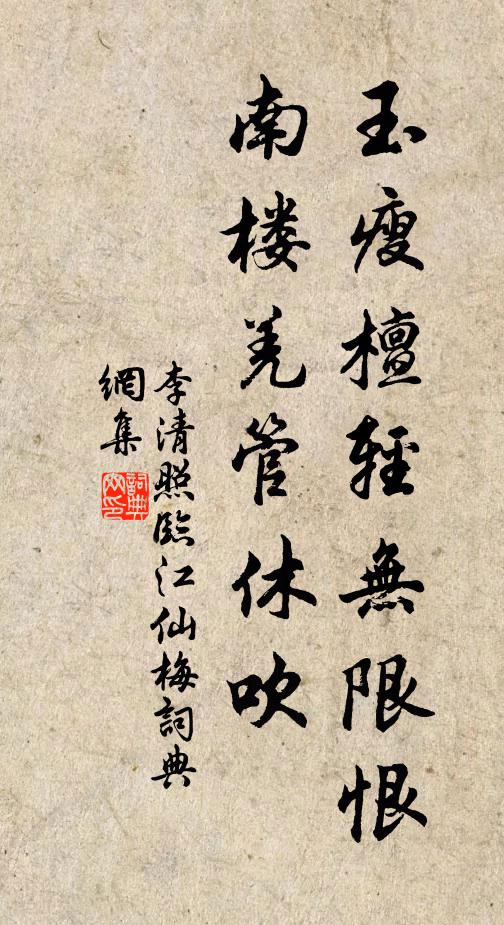 玉瘦檀輕無限恨
南楼羌管休吹
李清照臨江仙梅詞典
網集
詞典
網印